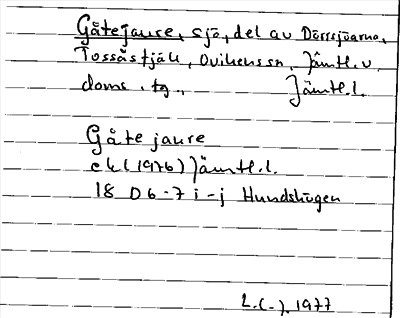 Gåtejaure, sjö, del av Dörrsjöarna,
Tossåsfjäll, Ovikens sn, Jämtl. v.
doms. tg., Jämtl.l.
Gåtejaure
ek (1976) Jämtl.l.
18 D 6-7 i-j Hundshögen
1977